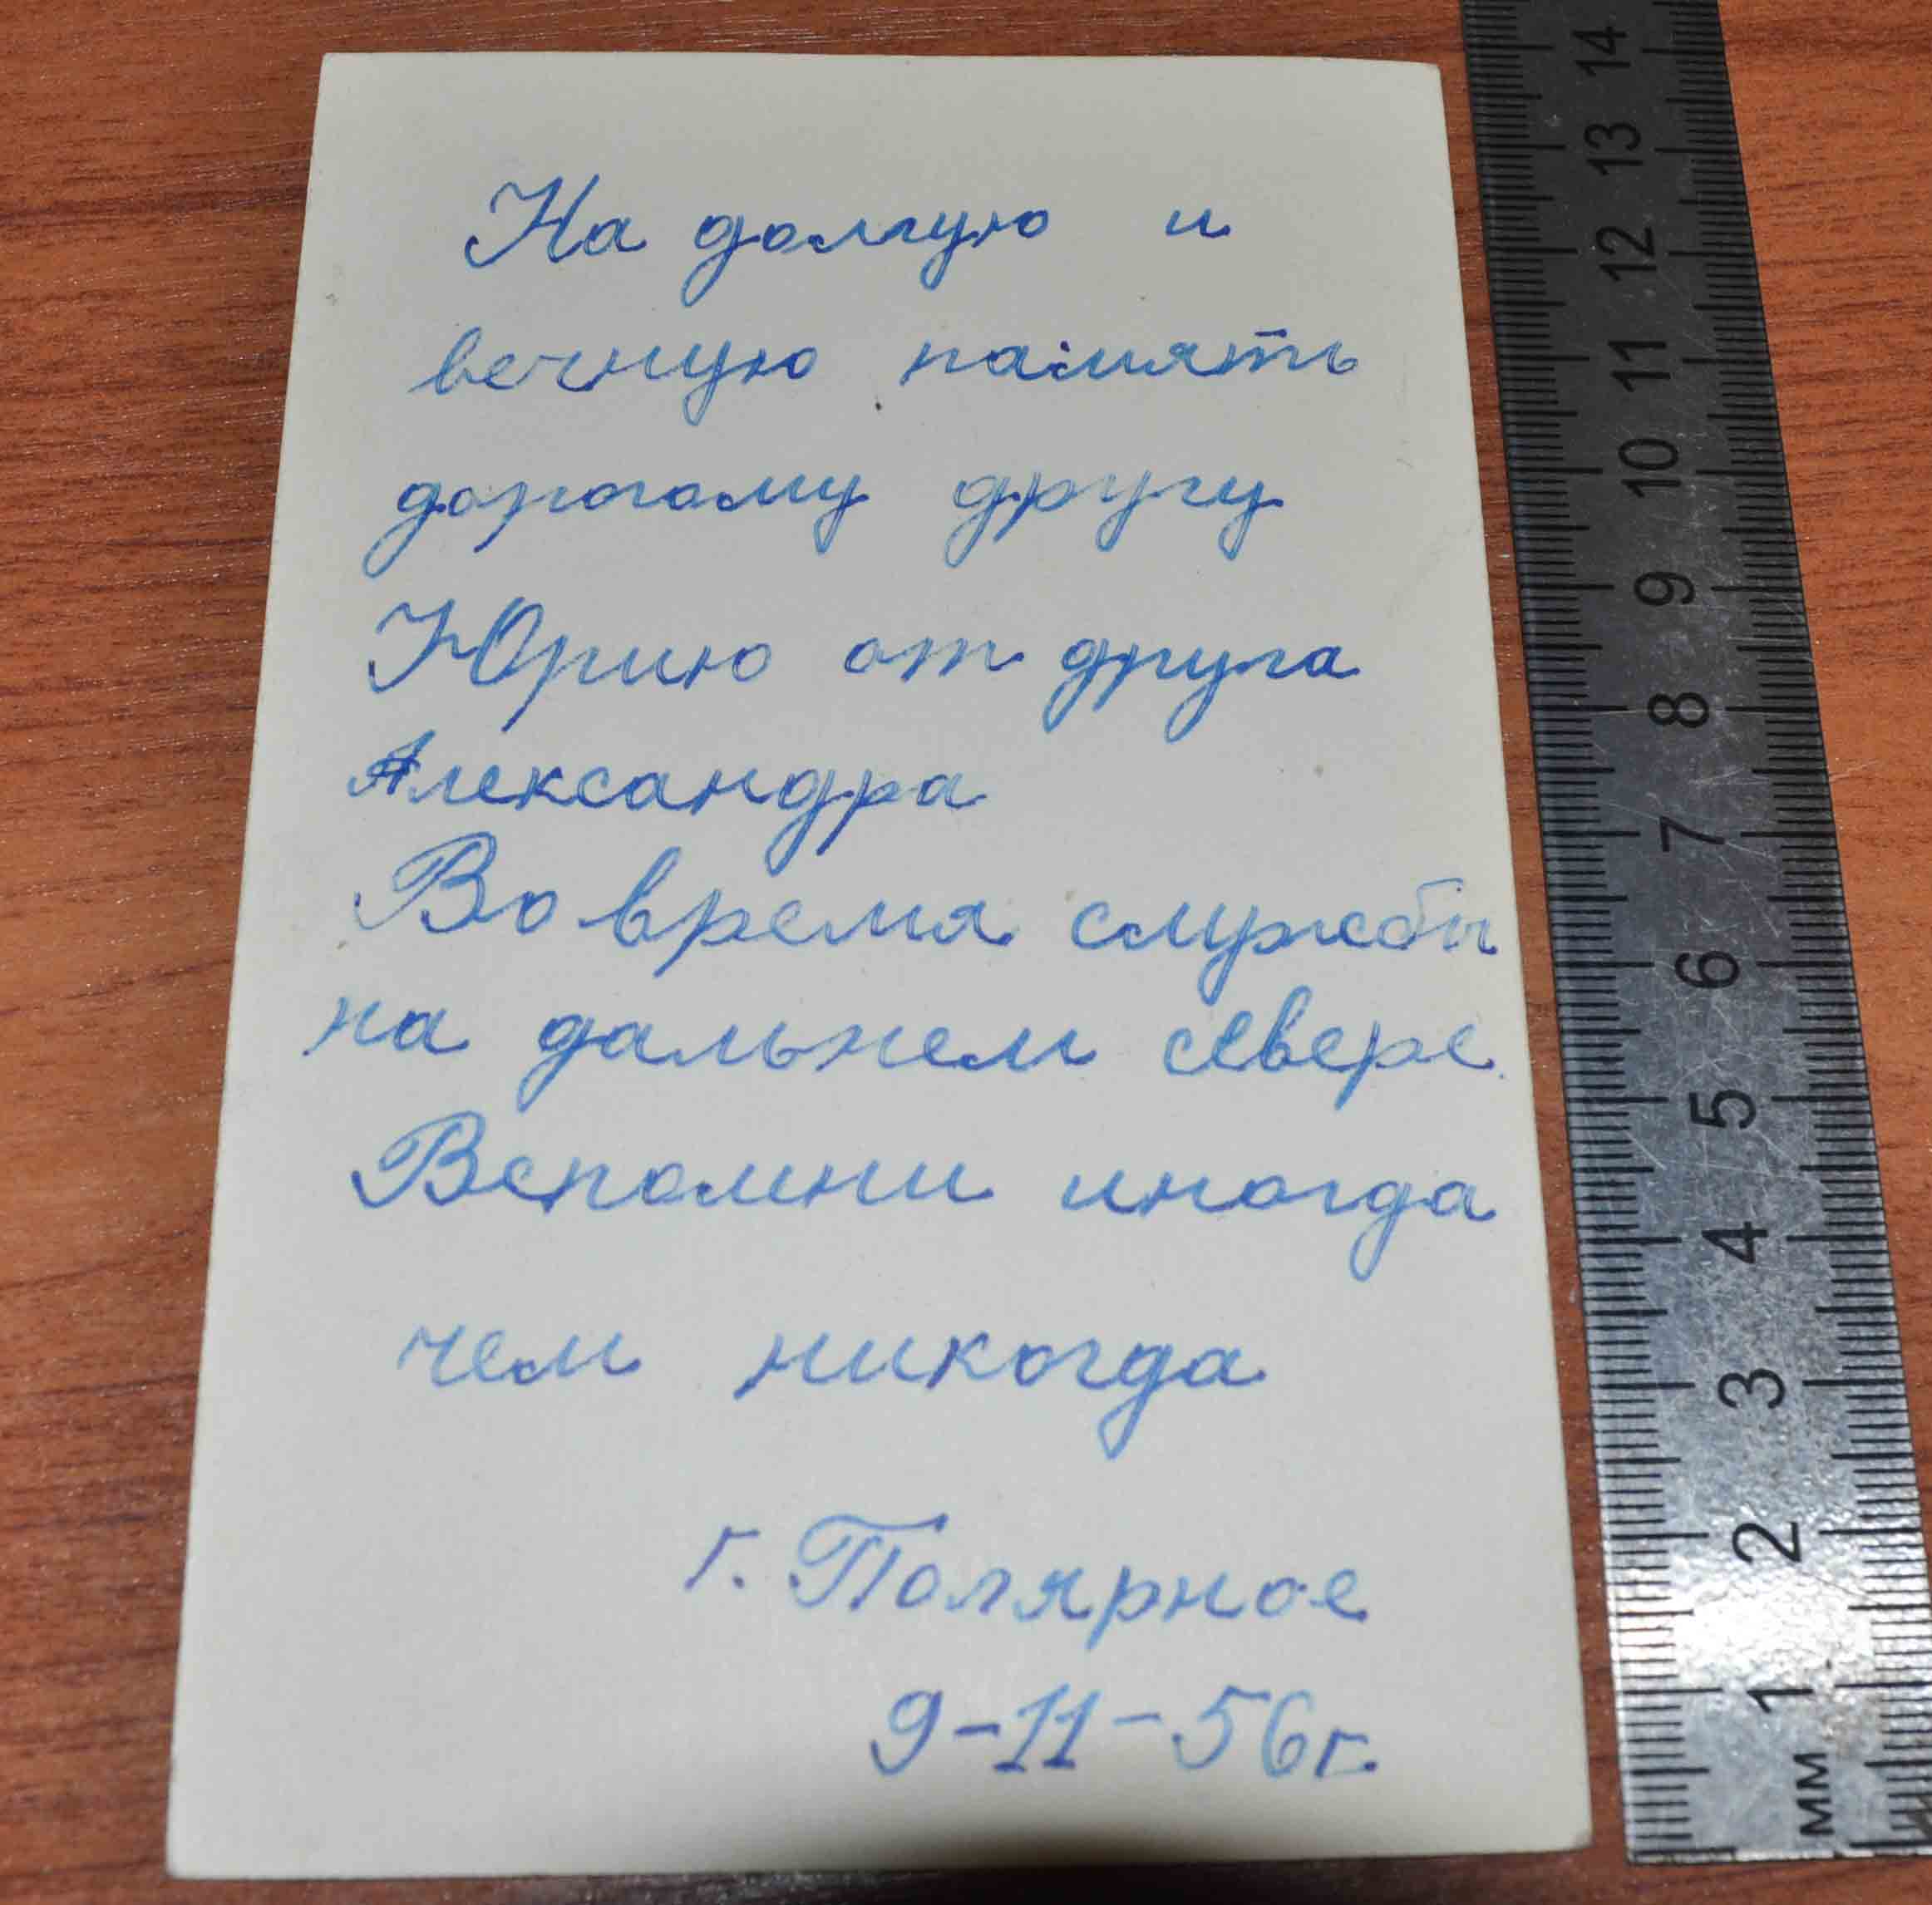 На долгую и
вечную память
дорогому другу
Юрию от друга
Александра
Во время службы
на дальнем севере.
Вспомни иногда
чем никогда
г. Полярное
9-11-56г.
14
13
12
11
10
9
8
7
6
5
4
3
2
1
мм